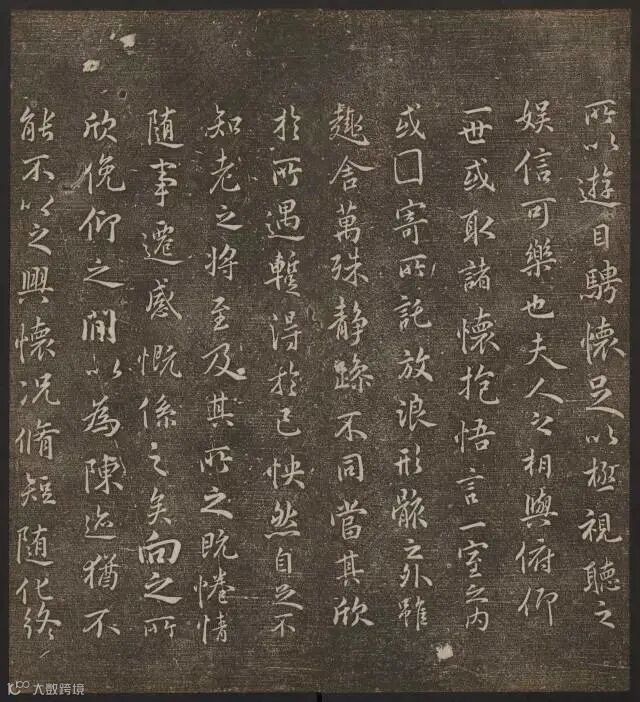 所以遊目騁懷足以極視聽之
娛信可樂也夫人之相與俯仰
一世或取諸懷抱悟言一室之内
或囗寄所託放浪形骸之外雖
趣舍萬殊静躁不同當其欣
於所遇蹔得於己怏然自足不
知老之将至及其所之既惓情
随事遷感慨係之矣向之所
欣俛仰之閒以為陳迹猶不
能不以之興懷况脩短随化終
大数跨境